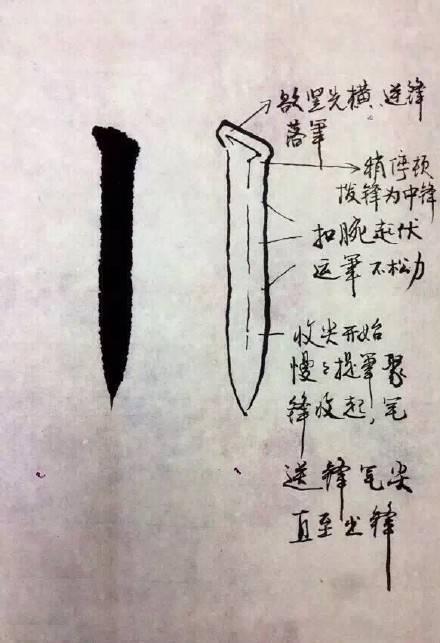 欲竖先横、逆锋
落笔
稍停顿
拨锋为中锋
扣腕起伏
运笔不松力
收尖开始
慢々提笔聚
锋收起，笔
送锋笔尖
直至出锋